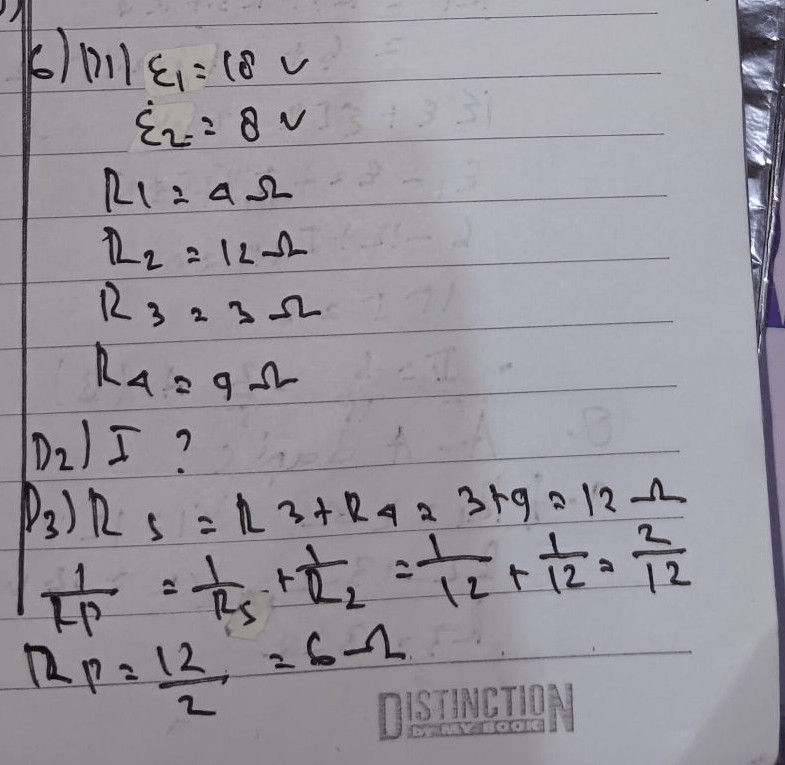 6) D1) ε1 = 18 V
ε2 = 8 V
R1 = 4 Ω
R2 = 12 Ω
R3 = 3 Ω
R4 = 9 Ω
D2) I ?
D3) Rs = R3 + R4 = 3+9 = 12 Ω
1/Rp = 1/Rs + 1/R2 = 1/12 + 1/12 = 2/12
Rp = 12/2 = 6 Ω
DISTINCTION
BY MY BOOK